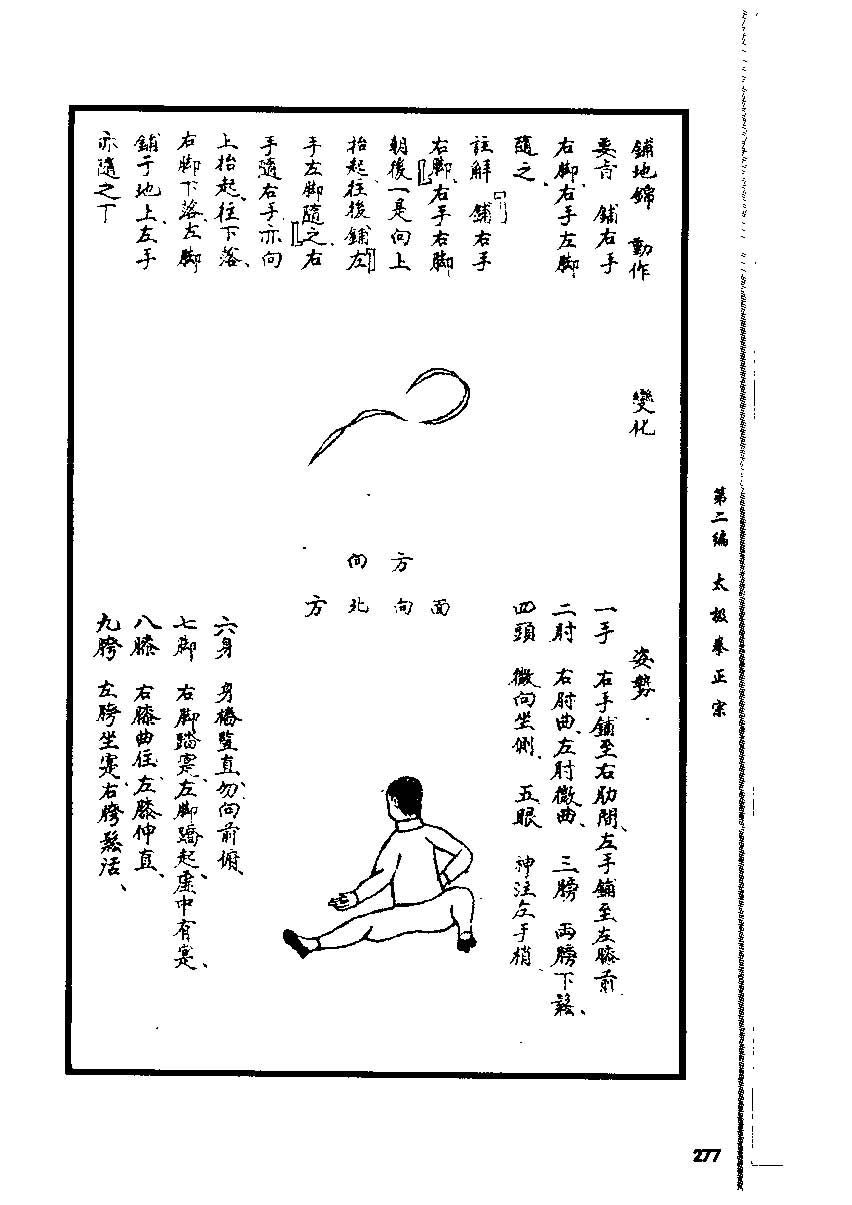 鋪地錦 動作
要言 鋪右手
右脚、右手左脚
隨之、
註解「鋪右手
右脚、右手右脚
朝後一是向上
抬起、往後鋪左
手左脚隨之、右
手隨右手亦向
上抬起、往下落、
右脚下落、左脚
鋪于地上、左手
亦隨之下
變化
方向
面向北方
姿勢
一手 右手鋪至右肋間、左手鋪至左膝前
二肘 右肘曲、左肘微曲、 三膀 兩膀下鬆、
四頭 微向坐側、 五眼 神注左手梢
六身 身樁豎直、勿向前俯、
七脚 右脚踏寔、左脚蹻起、虛中有寔、
八膝 右膝曲住、左膝伸直、
九胯 左胯坐寔、右胯鬆活、
第二編 太极拳正宗
277